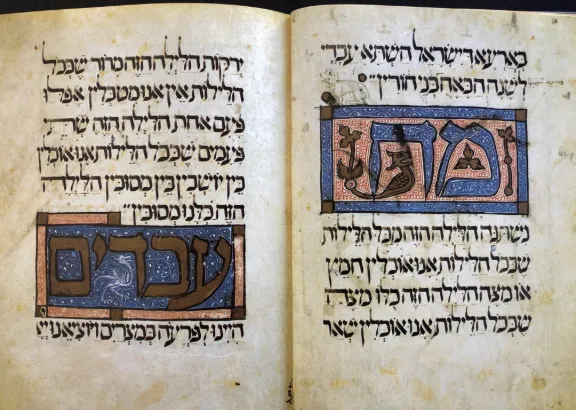 בארעא דישראל השתא עבדי
לשנה הבאה בני חורין׃
מה
נשתנה הלילה הזה מכל הלילות
שבכל הלילות אנו אוכלין חמץ
או מצה הלילה הזה כלו מצה
שבכל הלילות אנו אוכלין שאר
ירקות הלילה הזה מרור שבכל
הלילות אין אנו מטבלין אפלו
פעם אחת הלילה הזה שתי
פעמים שבכל הלילות אנו אוכלין
בין יושבין בין מסובין הלילה
הזה כלנו מסובין׃
עבדים
היינו לפרעה במצרים ויוציאנו יי